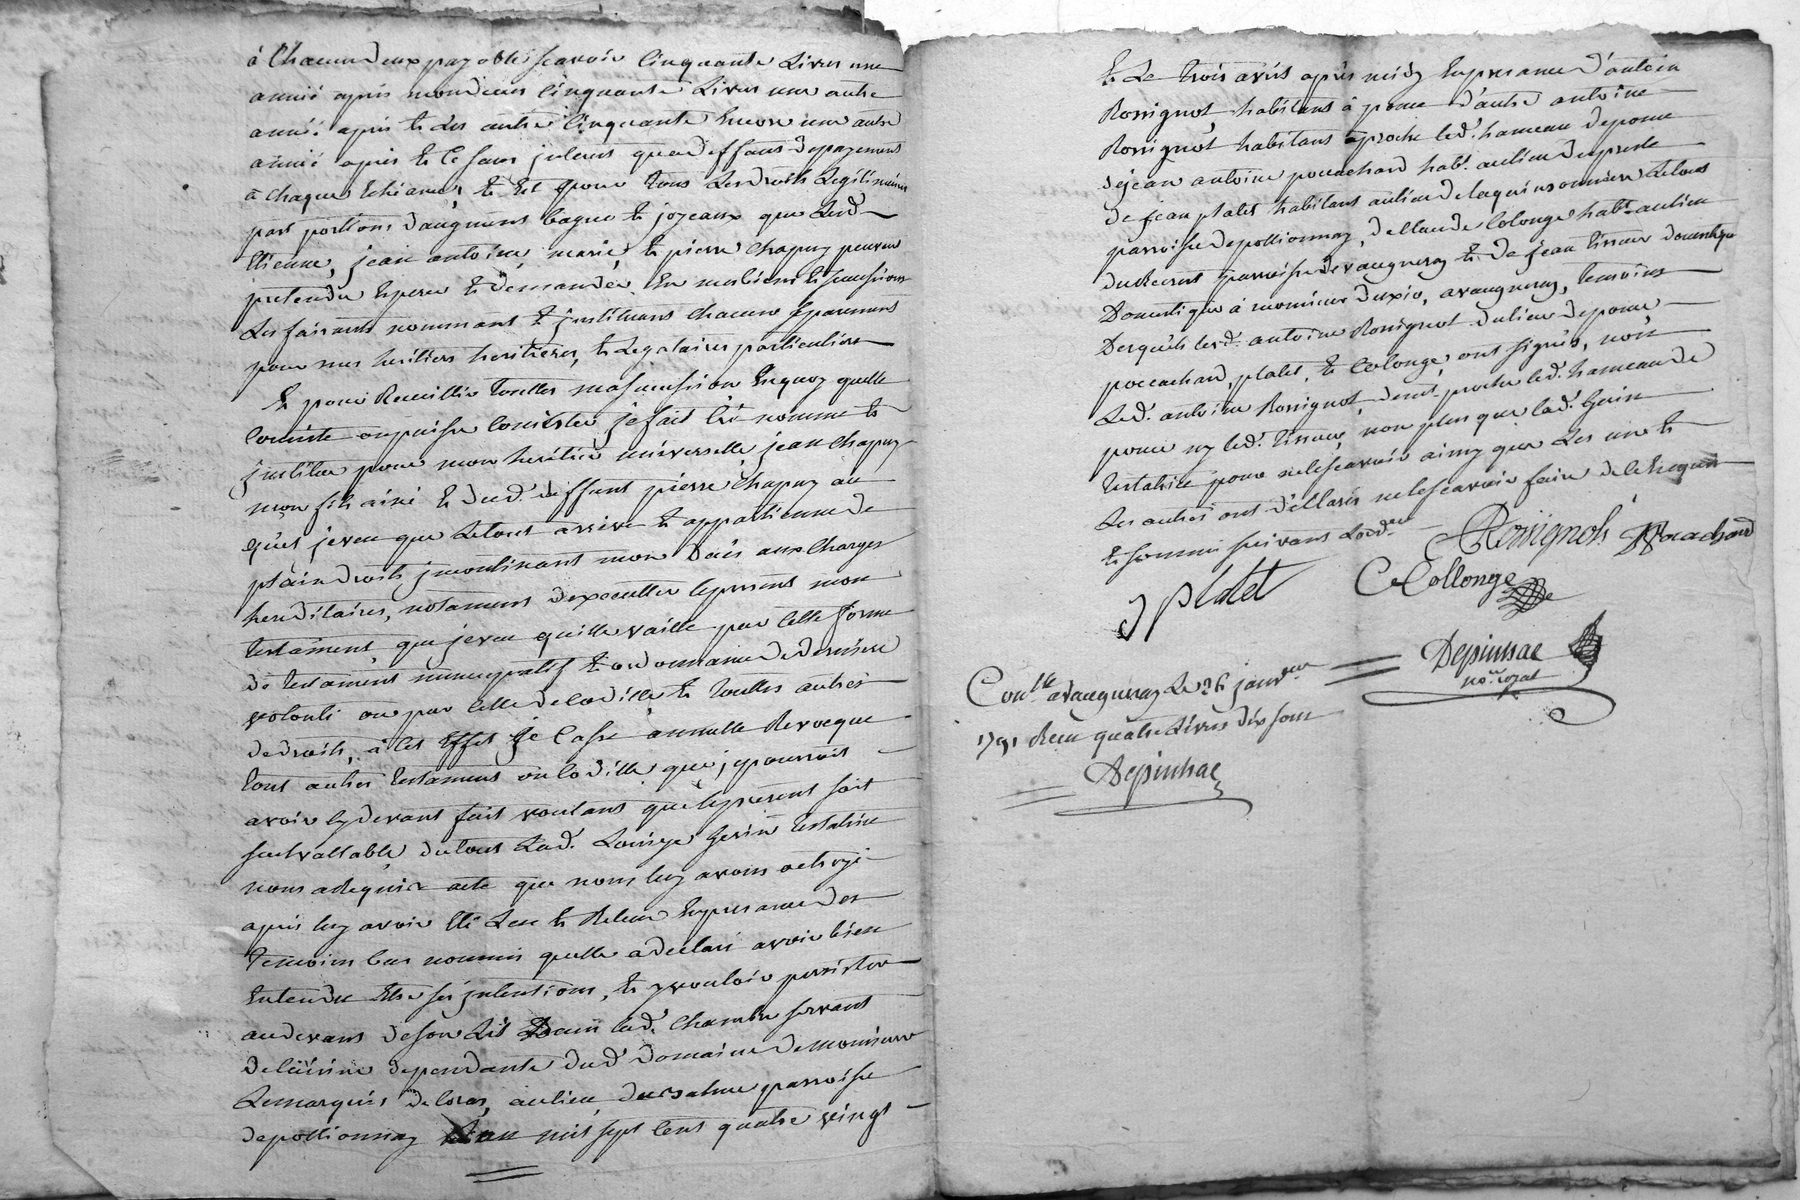 à Chacun d'eux payable scavoir Cinquante Livres une
année après mon deceds Cinquante Livres une autre
année après & Les autres Cinquante Encore une autre
année après & Ce sans interest qu'en deffaut de payement
à chaque Echeance, & Est pour tous Les droits Legitimaires
part portions d'augment bague & joyeaux que Lesd.
Etienne, jean antoine, marie, & pierre chapuy peuvent
pretendre Esperer & demander En mes biens & succession
Les faisants nommant & instituans Chacun separement
pour mes heritiers heritieres, & Legataires particuliers
Et pour Recueillir touttes ma succession En quoy qu'elle
Consiste ou puisse Consister je fait Crée nomme &
institue pour mon heritier universelle jean chapuy
mon fils ainé & dud. deffunt pierre chapuy au
quel jeveu que Letout arrive & appartienne de
plain droit incontinant mon Dcès aux Charges
hereditaires, notament d'executter lepresent mon
testament que jeveu qu'ille vaille par Cette forme
de testament nuncupatif & ordonnance de derniere
volonté ou par Celle de Codicille & touttes autres
de droits, à Cet Effet je Casse annulle Revoque
tout autres testaments ou Codicille que je pourrois
avoir Cy devant fait voulant que lepresent soit
seul vallable du tout Lad. Louise Gerin testatrice
nous a Requis acte que nous luy avons octroyé
après luy avoir Eté Leu & Releu En presance des
Temoins bas nommés quelle a declaré avoir bien
Entendu Etre ses intentions, & y vouloir persister
au devant deson Lit Dans lad. Chambre servant
de Cuisine dependante dud. domaine de monsieur
Lemarquis de Coras, au lieu du paroisse
depollionnay L'an mil sept Cent quatre vingt
& Le trois avril après midy En presance d'antoin
Rossignol habitant à pome d'autre antoine
Rossignol habitant proche led. hameau de pome
de jean antoine pouachard habt. au lieu du
de jean platet habitant au lieu de laquinsonniere Letout
parroisse depollionnay, de Claude Colonge habt. au lieu
du Recret parroisse de vaugneray & de jean tisseur domestique
Domestique à monsieur duxio, avaugneray, temoins
Desquels lesd. antoine Rossignol du lieu de pome,
pouachard, platet, & Colonge, ont signés, non
Led. antoine Rossignol, dem.t proche led. hameau de
pome ny led. tisseur, non plus que lad. Gerin
testatrice pour nelescavoir ainsy que Les uns &
Les autres ont dEllarés nelescavoir faire de ce Enquis
& sommés suivant Lord.ce
Rossignol Pouachard
J platet CCollonge
Depinhac
no.re royal
Con.lle avaugneray Le 26 janv.er
1791 Reçu quatre Livres dix sous
Depinhac